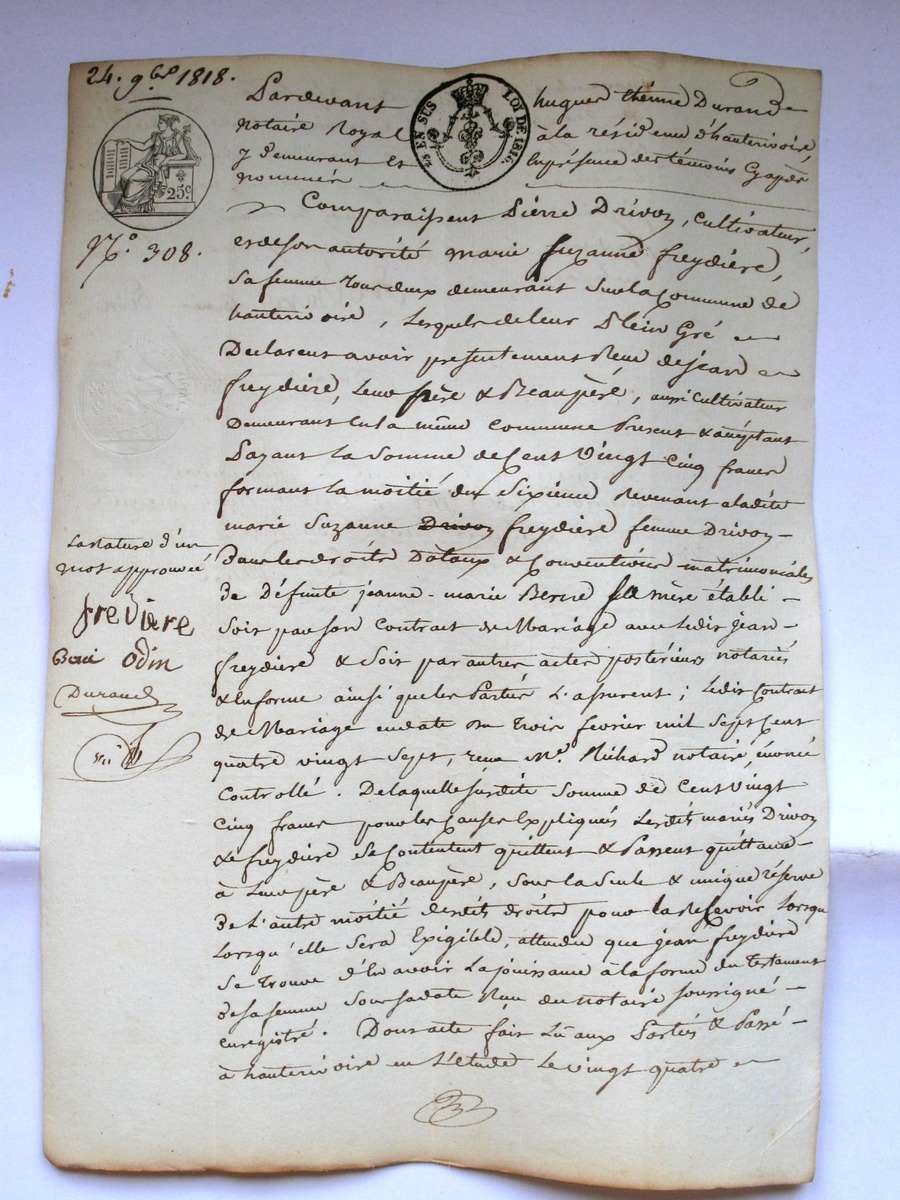 24. 9bre 1818.
EN SUS
LOI DE 1816.
25c.
N.° 308.
Pardevant hugues étienne Durand
notaire Royal à la résidence d'hauterivoire,
y demeurant et en présence des témoins cy après
nommés
Comparaissent Pierre Drivon, cultivateur,
et de son autorité marie suzanne freydière,
sa femme tous deux demeurant sur la Commune de
hauterivoire, lesquels de leur plein Gré
Déclarent avoir présentement Reçu de jean
freydière, leur père & Beaupère, aussi cultivateur
Demeurant en la même commune Présent & acceptant
Payant la Somme de Cent Vingt Cinq francs
formant la moitié du Sixième Revenant à ladite
marie Suzanne Drivon freydière femme Drivon
Dans les droits Dotaux & Conventions matrimoniales
de Défunte jeanne-marie sa mère établi
Soit par son Contrat de Mariage avec ledit jean
freydière & Soit par autres actes postérieurs notariés
& en forme ainsi que les Parties l'assurent; ledit Contrat
de Mariage en date du trois février mil Sept Cent
quatre vingt Sept, reçu Me. notaire, énoncé
Controllé. De laquelle susdite Somme de Cent Vingt
Cinq francs pour les Causes Expliquées lesdits mariés Drivon
& freydière Se Contentent quittent & Passent quittance
à leur père & Beaupère, sous la Seule & unique réserve
de l'autre moitié desdits droits pour la Recevoir lorsqu
lorsqu'elle Sera Exigible, attendu que jean freydière
Se trouve d'en avoir la jouissance à la forme du testament
de sa femme Sous sa date Reçu du notaire soussigné
enregistré. Dont acte fait lû aux Parties & Passé
à hauterivoire en l'étude le vingt quatre
La rature d'un
mot approuvée
freviere
Odin
Durand